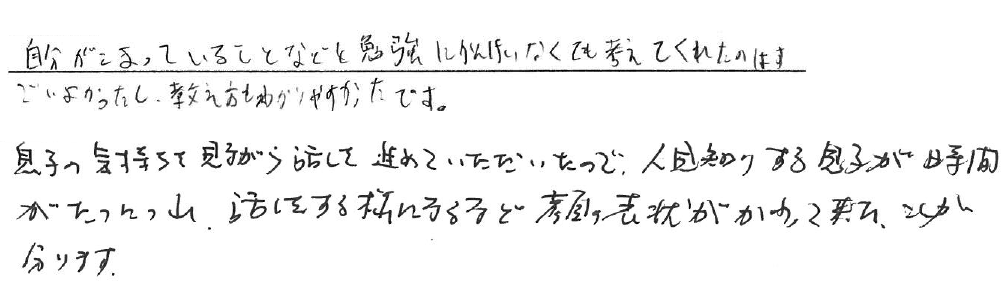 自分がこまっていることなどを勉強にかんけいなくても考えてくれたのはす
ごいよかったし、教え方もわかりやすかったです。
息子の気持ちを見ながら話して進めていただいたので、人見知りする息子が時間
がたつにつれ、話をする様になるなど顔の表状がかわって来た、ことが
分ります。